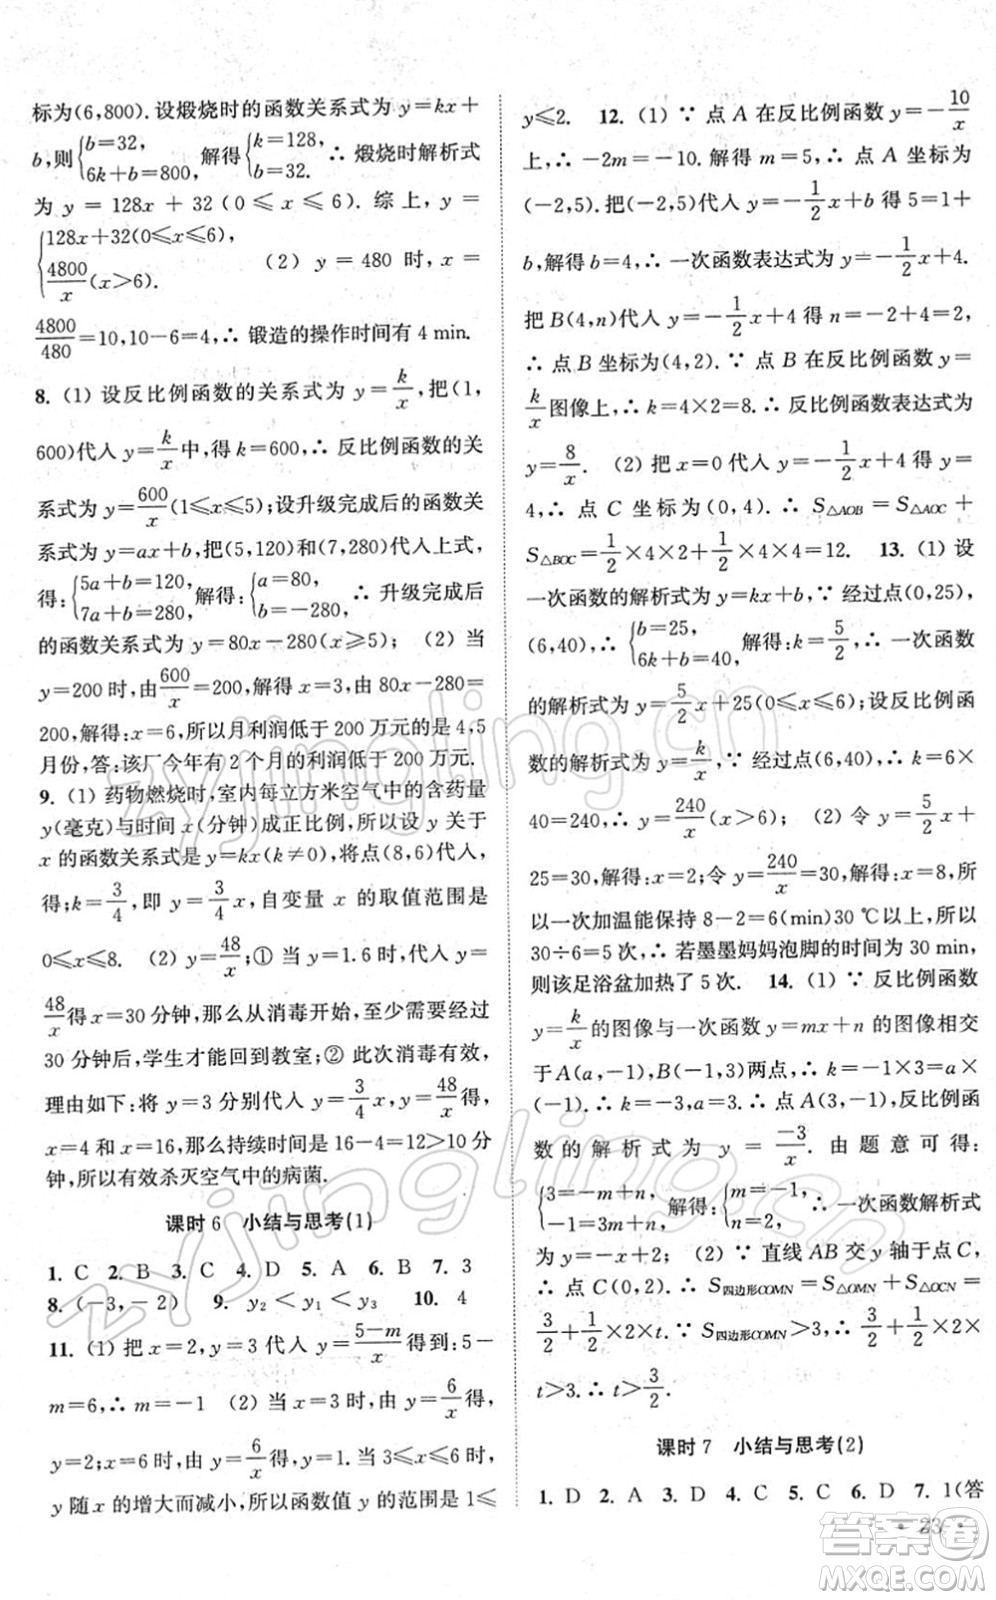 标为(6,800).设煅烧时的函数关系式为 y=kx+
b,则{b=32, 6k+b=800, 解得{k=128, b=32. ∴ 煅烧时解析式
为 y = 128x + 32(0 ≤ x ≤ 6). 综上, y =
{128x+32(0≤x≤6), 4800/x(x>6). (2) y = 480 时, x =
4800/480=10,10-6=4,∴ 锻造的操作时间有 4 min.
8. (1) 设反比例函数的关系式为 y=k/x,把(1,
600)代入 y=k/x中,得 k=600,∴ 反比例函数的关
系式为 y=600/x(1≤x≤5);设升级完成后的函数关
系式为 y=ax+b,把(5,120)和(7,280)代入上式,
得:{5a+b=120, 7a+b=280, 解得:{a=80, b=-280, ∴ 升级完成后
的函数关系式为 y=80x-280(x≥5); (2) 当
y=200 时,由600/x=200,解得 x=3,由 80x-280=
200,解得:x=6,所以月利润低于 200 万元的是 4,5
月份,答:该厂今年有 2 个月的利润低于 200 万元.
9. (1) 药物燃烧时,室内每立方米空气中的含药量
y(毫克)与时间 x(分钟)成正比例,所以设 y 关于
x 的函数关系式是 y=kx(k≠0),将点(8,6)代入,
得:k=3/4,即 y=3/4x,自变量 x 的取值范围是
0≤x≤8. (2) y=48/x;① 当 y=1.6 时,代入 y=
48/x得 x=30 分钟,那么从消毒开始,至少需要经过
30 分钟后,学生才能回到教室;② 此次消毒有效,
理由如下:将 y=3 分别代入 y=3/4x,y=48/x得,
x=4 和 x=16,那么持续时间是 16-4=12>10 分
钟,所以有效杀灭空气中的病菌.
课时 6 小结与思考(1)
1. C 2. B 3. C 4. D 5. A 6. B 7. 3
8. (-3,-2) 9. y₂<y₁<y₃ 10. 4
11. (1) 把 x=2,y=3 代入 y=5-m/x得到:5-
m=6,∴ m=-1 (2) 当 x=3 时,由 y=6/x得,
y=2;当 x=6 时,由 y=6/x得,y=1;当 3≤x≤6 时,
y 随 x 的增大而减小,所以函数值 y 的范围是 1≤
y≤2. 12. (1) ∵ 点 A 在反比例函数 y=-10/x
上,∴ -2m=-10. 解得 m=5,∴ 点 A 坐标为
(-2,5).把(-2,5)代入 y=-1/2x+b 得 5=1+
b,解得 b=4,∴ 一次函数表达式为 y=-1/2x+4.
把 B(4,n)代入 y=-1/2x+4 得 n=-2+4=2,
∴ 点 B 坐标为(4,2). ∵ 点 B 在反比例函数 y=
k/x图像上,∴ k=4×2=8.∴ 反比例函数表达式为
y=8/x. (2) 把 x=0 代入 y=-1/2x+4 得 y=
4,∴ 点 C 坐标为(0,4). ∴ S△AOB = S△AOC +
S△BOC=1/2×4×2+1/2×4×4=12. 13. (1) 设
一次函数的解析式为 y=kx+b,∵ 经过点(0,25),
(6,40),∴ {b=25, 6k+b=40, 解得:k=5/2,∴ 一次函数
的解析式为 y=5/2x+25(0≤x≤6);设反比例函
数的解析式为 y=k/x,∵ 经过点(6,40),∴ k=6×
40=240,∴ y=240/x(x>6); (2) 令 y=5/2x+
25=30,解得:x=2;令 y=240/x=30,解得:x=8,所
以一次加温能保持 8-2=6(min)30 ℃以上,所以
30÷6=5 次,∴ 若墨墨妈妈泡脚的时间为 30 min,
则该足浴盆加热了 5 次. 14. (1) ∵ 反比例函数
y=k/x 的图像与一次函数 y=mx+n 的图像相交
于 A(a,-1),B(-1,3)两点,∴ k=-1×3=a×
(-1).∴ k=-3,a=3.∴ 点 A(3,-1),反比例函
数的解析式为 y = -3/x. 由题意可得:
{3=-m+n, -1=3m+n, 解得:{m=-1, n=2, ∴ 一次函数解析式
为 y=-x+2; (2) ∵ 直线 AB 交 y 轴于点 C,
∴ 点 C(0,2).∴ S四边形COMN=S△OMN+S△OCN=
3/2+1/2×2×t.∵ S四边形COMN>3,∴ 3/2+1/2×2×
t>3.∴ t>3/2.
课时 7 小结与思考(2)
1. D 2. A 3. D 4. C 5. C 6. D 7. 1(答
23
zyjingling.cn
zyjingling.cn
答案圈
MXQE.COM